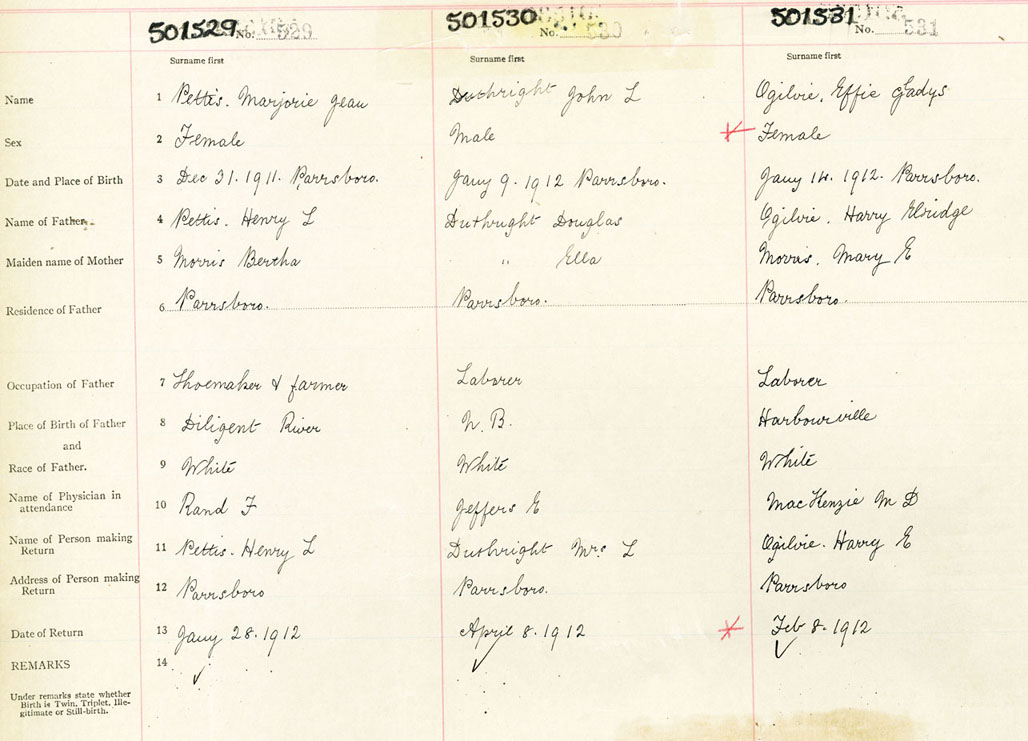 501529 No. 529 501530 No. 530 501531 No. 531
Surname first Surname first Surname first
Name 1 Pettis. Marjorie Jean Duthright John L Ogilvie. Effie Gladys
Sex 2 Female Male Female
Date and Place of Birth 3 Dec 31. 1911. Parrsboro. Jany 9. 1912 Parrsboro. Jany 14. 1912. Parrsboro.
Name of Father 4 Pettis. Henry L Duthright Douglas Ogilvie. Harry Eldridge
Maiden name of Mother 5 Morris Bertha " Ella Morris. Mary E
Residence of Father 6 Parrsboro. Parrsboro. Parrsboro.
Occupation of Father 7 Shoemaker & farmer Laborer Laborer
Place of Birth of Father 8 Diligent River N. B. Harbourville
and
Race of Father. 9 White White White
Name of Physician in
attendance 10 Rand F Jeffers E MacKenzie M D
Name of Person making
Return 11 Pettis. Henry L Duthright Mrs L Ogilvie. Harry E
Address of Person making
Return 12 Parrsboro Parrsboro. Parrsboro
Date of Return 13 Jany 28. 1912 April 8. 1912 Feb 8. 1912
REMARKS 14
Under remarks state whether
Birth is Twin, Triplet, Ille-
gitimate or Still-birth.